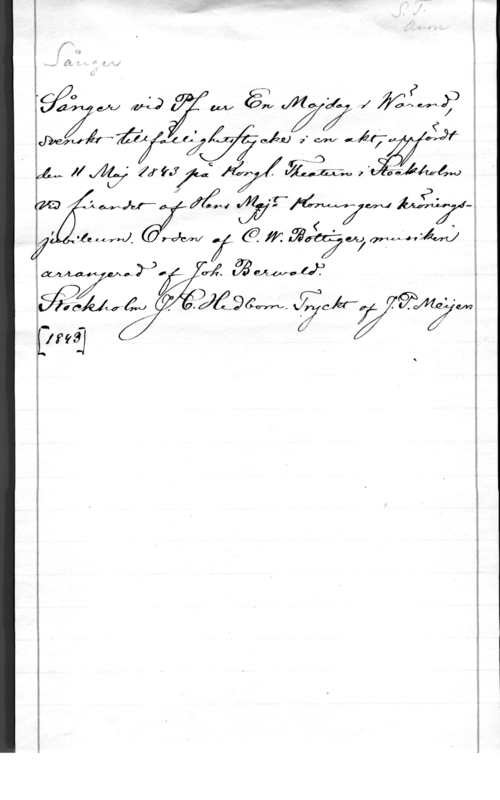 S. J.
Anon
Sånger
Sånger vid Pf ur En Majdag i Wärend,
svenskt tillfällighetsstycke i en akt, uppfördt
den 11 Maj 1843 på Kongl. Theatern i Stockholm
vid firandet af Hans Majt Konungens krönings-
jubileum. Orden af C. W. Böttiger, musiken
arrangerad af Joh. Berwald.
Stockholm J. C. Hedbom. Tryckt af J. P. Meijen
[1843]